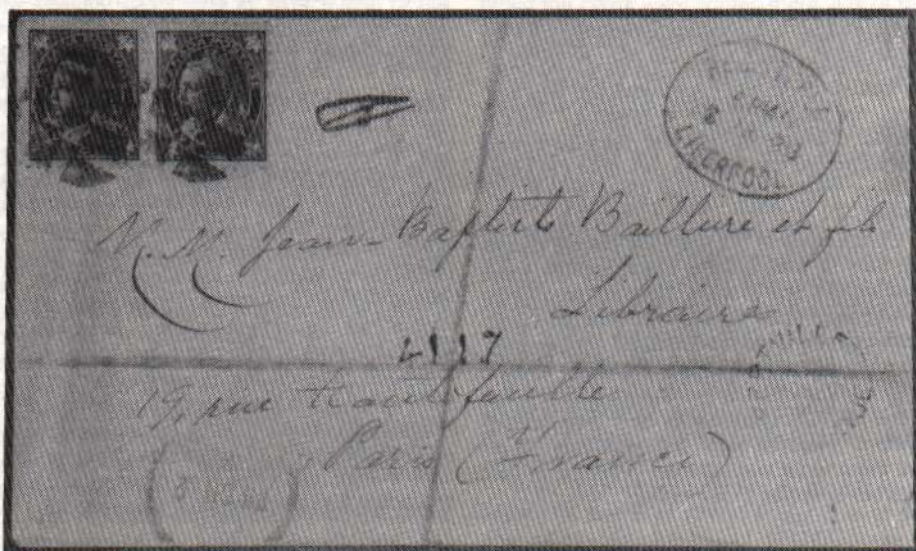 LIVERPOOL
M.M. Jean-Baptiste Bailliere et fils
Libraire
4117
19, rue Hautefeuille
Paris (France)